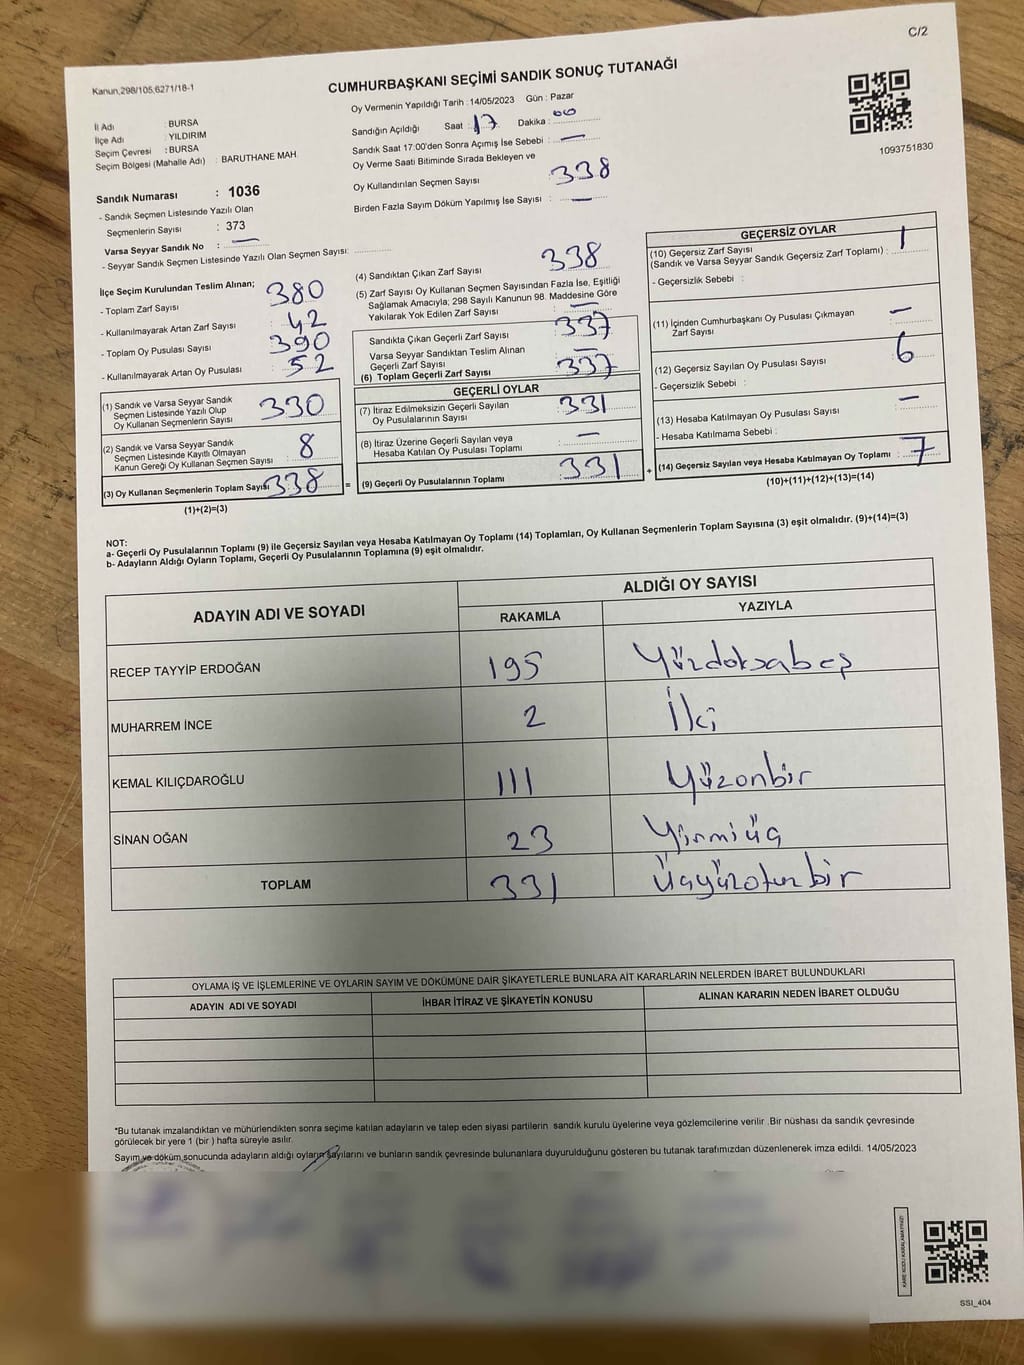 C/2
Kanun,298/105,6271/18-1
CUMHURBAŞKANI SEÇİMİ SANDIK SONUÇ TUTANAĞI
İl Adı : BURSA
İlçe Adı : YILDIRIM
Seçim Çevresi : BURSA
Seçim Bölgesi (Mahalle Adı) : BARUTHANE MAH.
Sandık Numarası : 1036
- Sandık Seçmen Listesinde Yazılı Olan
Seçmenlerin Sayısı : 373
Varsa Seyyar Sandık No : —
- Seyyar Sandık Seçmen Listesinde Yazılı Olan Seçmen Sayısı: ..............
Oy Vermenin Yapıldığı Tarih : 14/05/2023 Gün : Pazar
Sandığın Açıldığı Saat : 17 Dakika : 00
Sandık Saat 17:00'den Sonra Açımış İse Sebebi : —
Oy Verme Saati Bitiminde Sırada Bekleyen ve
Oy Kullandırılan Seçmen Sayısı : 338
Birden Fazla Sayım Döküm Yapılmış İse Sayısı : —
1093751830
İlçe Seçim Kurulundan Teslim Alınan;
- Toplam Zarf Sayısı : 380
- Kullanılmayarak Artan Zarf Sayısı : 42
- Toplam Oy Pusulası Sayısı : 390
- Kullanılmayarak Artan Oy Pusulası : 52
(1) Sandık ve Varsa Seyyar Sandık
Seçmen Listesinde Yazılı Olup
Oy Kullanan Seçmenlerin Sayısı : 330
(2) Sandık ve Varsa Seyyar Sandık
Seçmen Listesinde Kayıtlı Olmayan
Kanun Gereği Oy Kullanan Seçmen Sayısı : 8
(3) Oy Kullanan Seçmenlerin Toplam Sayısı 338 =
(1)+(2)=(3)
(4) Sandıktan Çıkan Zarf Sayısı 338
(5) Zarf Sayısı Oy Kullanan Seçmen Sayısından Fazla İse, Eşitliği
Sağlamak Amacıyla; 298 Sayılı Kanunun 98. Maddesine Göre
Yakılarak Yok Edilen Zarf Sayısı : —
Sandıkta Çıkan Geçerli Zarf Sayısı 337
Varsa Seyyar Sandıktan Teslim Alınan
Geçerli Zarf Sayısı : —
(6) Toplam Geçerli Zarf Sayısı : 337
GEÇERLİ OYLAR
(7) İtiraz Edilmeksizin Geçerli Sayılan
Oy Pusulalarının Sayısı : 331
(8) İtiraz Üzerine Geçerli Sayılan veya
Hesaba Katılan Oy Pusulası Toplamı : —
(9) Geçerli Oy Pusulalarının Toplamı : 331 +
GEÇERSİZ OYLAR
(10) Geçersiz Zarf Sayısı
(Sandık ve Varsa Seyyar Sandık Geçersiz Zarf Toplamı) : 1
- Geçersizlik Sebebi :
(11) İçinden Cumhurbaşkanı Oy Pusulası Çıkmayan
Zarf Sayısı : —
(12) Geçersiz Sayılan Oy Pusulası Sayısı : 6
- Geçersizlik Sebebi :
(13) Hesaba Katılmayan Oy Pusulası Sayısı : —
- Hesaba Katılmama Sebebi :
(14) Geçersiz Sayılan veya Hesaba Katılmayan Oy Toplamı : 7
(10)+(11)+(12)+(13)=(14)
NOT:
a- Geçerli Oy Pusulalarının Toplamı (9) ile Geçersiz Sayılan veya Hesaba Katılmayan Oy Toplamı (14) Toplamları, Oy Kullanan Seçmenlerin Toplam Sayısına (3) eşit olmalıdır. (9)+(14)=(3)
b- Adayların Aldığı Oyların Toplamı, Geçerli Oy Pusulalarının Toplamına (9) eşit olmalıdır.
ADAYIN ADI VE SOYADI
ALDIĞI OY SAYISI
RAKAMLA YAZIYLA
RECEP TAYYİP ERDOĞAN 195 Yüzdoksabeş
MUHARREM İNCE 2 İki
KEMAL KILIÇDAROĞLU 111 Yüzonbir
SİNAN OĞAN 23 Yirmiüç
TOPLAM 331 Üçyüzotuzbir
OYLAMA İŞ VE İŞLEMLERİNE VE OYLARIN SAYIM VE DÖKÜMÜNE DAİR ŞİKAYETLERLE BUNLARA AİT KARARLARIN NELERDEN İBARET BULUNDUKLARI
ADAYIN ADI VE SOYADI İHBAR İTİRAZ VE ŞİKAYETİN KONUSU ALINAN KARARIN NEDEN İBARET OLDUĞU
*Bu tutanak imzalandıktan ve mühürlendikten sonra seçime katılan adayların ve talep eden siyasi partilerin sandık kurulu üyelerine veya gözlemcilerine verilir .Bir nüshası da sandık çevresinde
görülecek bir yere 1 (bir ) hafta süreyle asılır.
Sayım ve döküm sonucunda adayların aldığı oyların sayılarını ve bunların sandık çevresinde bulunanlara duyurulduğunu gösteren bu tutanak tarafımızdan düzenlenerek imza edildi. 14/05/2023
KARE KODU KARALAMAYINIZ!
SSI_404